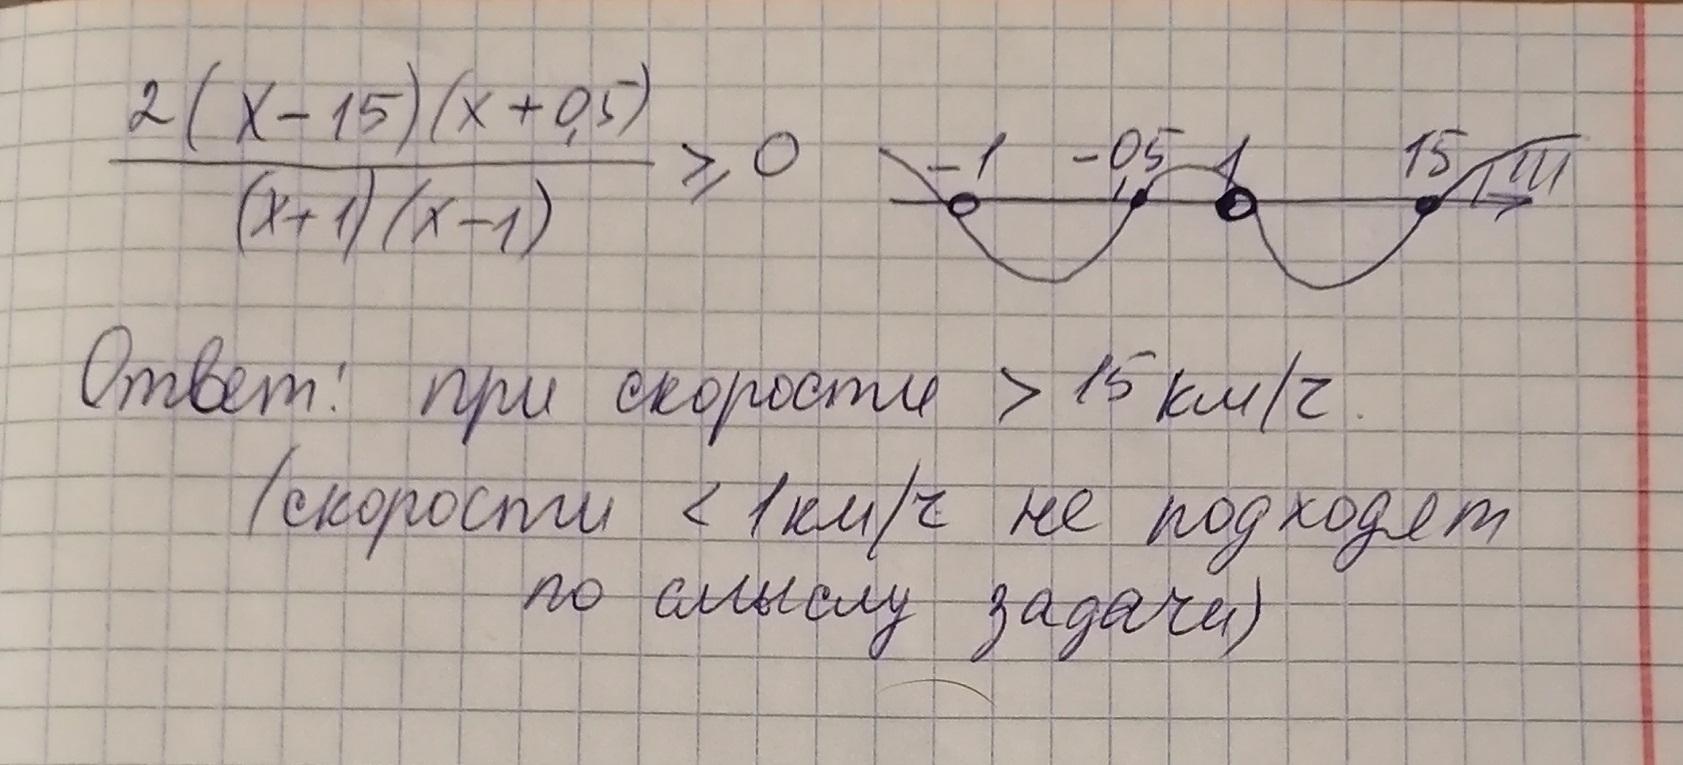 2(x-15)(x+0,5)
(x+1)(x-1)
≥ 0
-1 -0,5 1 15
Ответ: при скорости > 15 км/ч.
(скорости < 1 км/ч не подходят
по смыслу задачи)